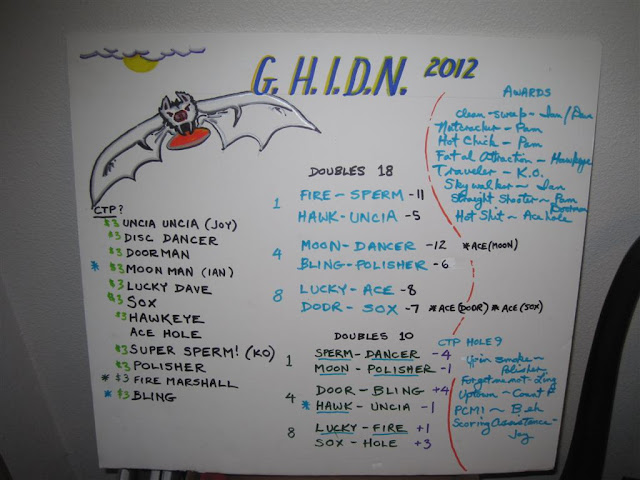 G. H.I.D.N. 2012
CTP?
$3 UNCIA UNCIA (JOY)
$3 DISC DANCER
$3 DOORMAN
* $3 MOON MAN (IAN)
$3 LUCKY DAVE
$3 SOX
$3 HAWKEYE
ACE HOLE
$3 SUPER SPERM! (KO)
$3 POLISHER
* $3 FIRE MARSHALL
* $3 BLING
DOUBLES 18
1 FIRE - SPERM - 11
HAWK - UNCIA - 5
4 MOON - DANCER - 12 * ACE (MOON)
BLING - POLISHER - 6
8 LUCKY - ACE - 8
DOOR - SOX - 7 * ACE (DOOR) * ACE (SOX)
DOUBLES 10
1 SPERM - DANCER - 4
MOON - POLISHER - 1
4 DOOR - BLING + 4
* HAWK - UNCIA - 1
8 LUCKY - FIRE + 1
SOX - HOLE + 3
AWARDS
Clean - swap - Ian/
Nutcracker - Pam
Hot Chick - Pam
Fatal Attraction - Hawkeye
Traveler - K.O.
Skywalker - Ian
Straight Shooter - Pam
Doorman
Hot Shit - Ace hole
CTP HOLE 9
Up in smoke -
Polisher
Forget me not - Ling
Uptown - Count
PCM1 -
Scoring Assistance -
Joy